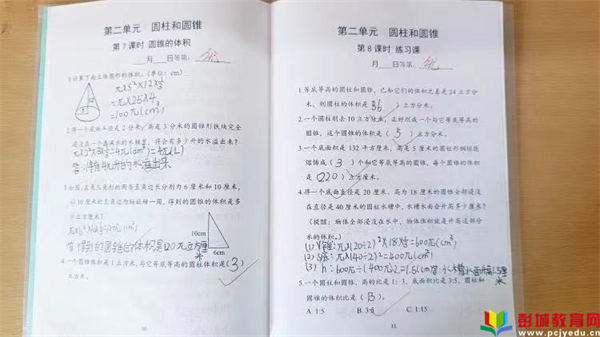 第二单元 圆柱和圆锥
第 7 课时 圆锥的体积
月 日 等第: 优
1.计算下面立体图形的体积。(单位:cm)
π×5²×12×⅓
=π×25×4
=100π(cm³)
2.将一个底面半径是 2 分米,高是 3 分米的圆锥形铁块完全
浸没在一个盛满水的水桶里,将会有多少升的水溢出来?
3.如图,直角三角形的两条直角边长分别为 6 厘米和 10 厘米,
以 10 厘米的直角边为轴旋转一周,得到的图形的体积是多
少立方厘米?
答:得到的圆锥的体积是120π立方厘米
10cm
6cm
4.一个圆锥体积是 1 立方分米,与它等底等高的圆柱体积是(3)
立方分米。
10
第二单元 圆柱和圆锥
第 8 课时 练习课
月 日 等第: 优
1.等底等高的圆柱和圆锥,已知它们的体积之差是 24 立方分
米,则圆柱的体积是( 36 )立方分米。
2.一个圆柱削去 10 立方米后,正好削成一个与它等底等高的
圆锥,这个圆锥的体积是( 5 )立方米。
3.一个底面积是 132 平方厘米,高是 5 厘米的圆柱形钢锭能
熔铸成( 3 )个和它等底等高的圆锥,每个圆锥的体积是
( 220 )立方厘米。
4.将一个底面直径是 20 厘米,高为 18 厘米的圆锥全部浸没
在直径是 40 厘米的圆柱水槽中,水槽水面会升高多少厘米?
(提醒:物体全部浸没在水中,物体体积就是升高这部分
水的体积。)
(1) V锥:π×(20÷2)²×18×⅓=600π(cm³)
(2) S底:π×(40÷2)²=400π(cm²)
(3) h:600π÷(400π)=1.5(cm)
5.一个圆柱和圆锥,高的比是 1:3,底面积比是 3:5,圆柱和
圆锥的体积比是( B )。
A.1:5 B.3:5 C.1:15
11
彭城教育网
www.pcjyedu.cn